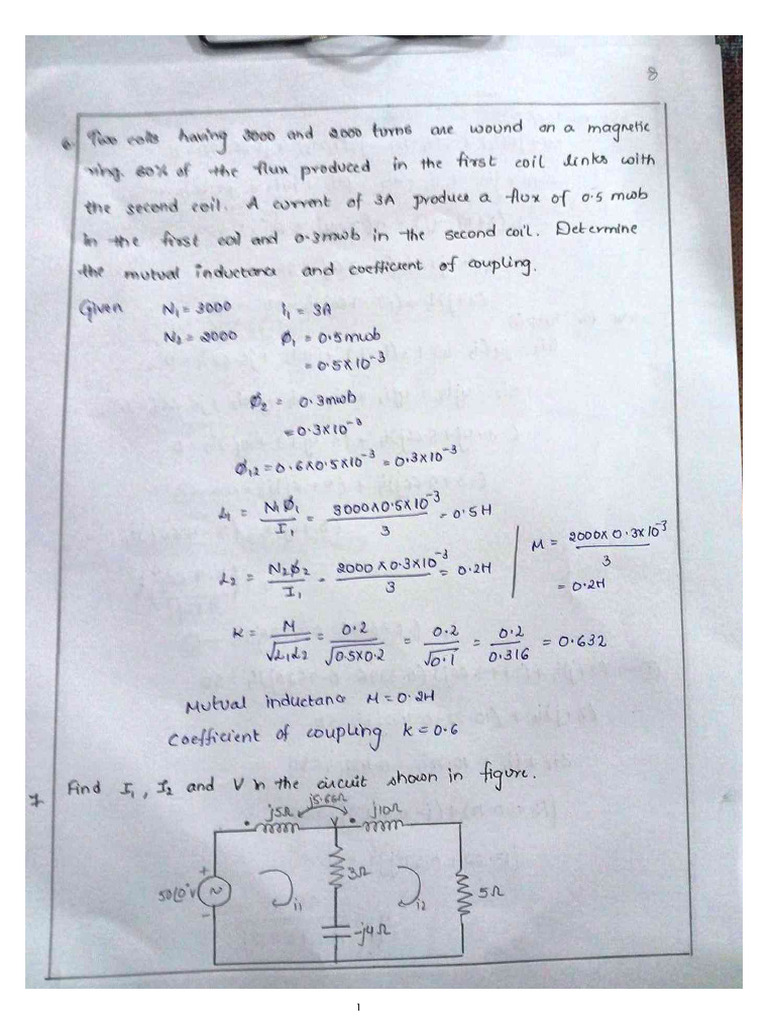 8
6. Two coils having 3000 and 2000 turns are wound on a magnetic
ring. 60% of the flux produced in the first coil links with
the second coil. A current of 3A produce a flux of 0.5 mwb
in the first coil and 0.3mwb in the second coil. Determine
the mutual inductance and coefficient of coupling.
Given N₁ = 3000 I₁ = 3A
N₂ = 2000 ϕ₁ = 0.5mwb
= 0.5×10⁻³
ϕ₂ = 0.3mwb
= 0.3×10⁻³
ϕ₁₂ = 0.6×0.5×10⁻³ = 0.3×10⁻³
L₁ = N₁ϕ₁/I₁ = 3000×0.5×10⁻³/3 = 0.5H
L₂ = N₂ϕ₂/I₁ = 2000×0.3×10⁻³/3 = 0.2H
M = 2000×0.3×10⁻³/3
= 0.2H
K = M/√L₁L₂ = 0.2/√0.5×0.2 = 0.2/√0.1 = 0.2/0.316 = 0.632
Mutual inductance M = 0.2H
Coefficient of coupling K = 0.6
7. Find I₁, I₂ and V in the circuit shown in figure.
j5.66Ω
j5Ω V j10Ω
+ 3Ω
50∠0°V ~ i₁ i₂ 5Ω
-
-j4Ω
1